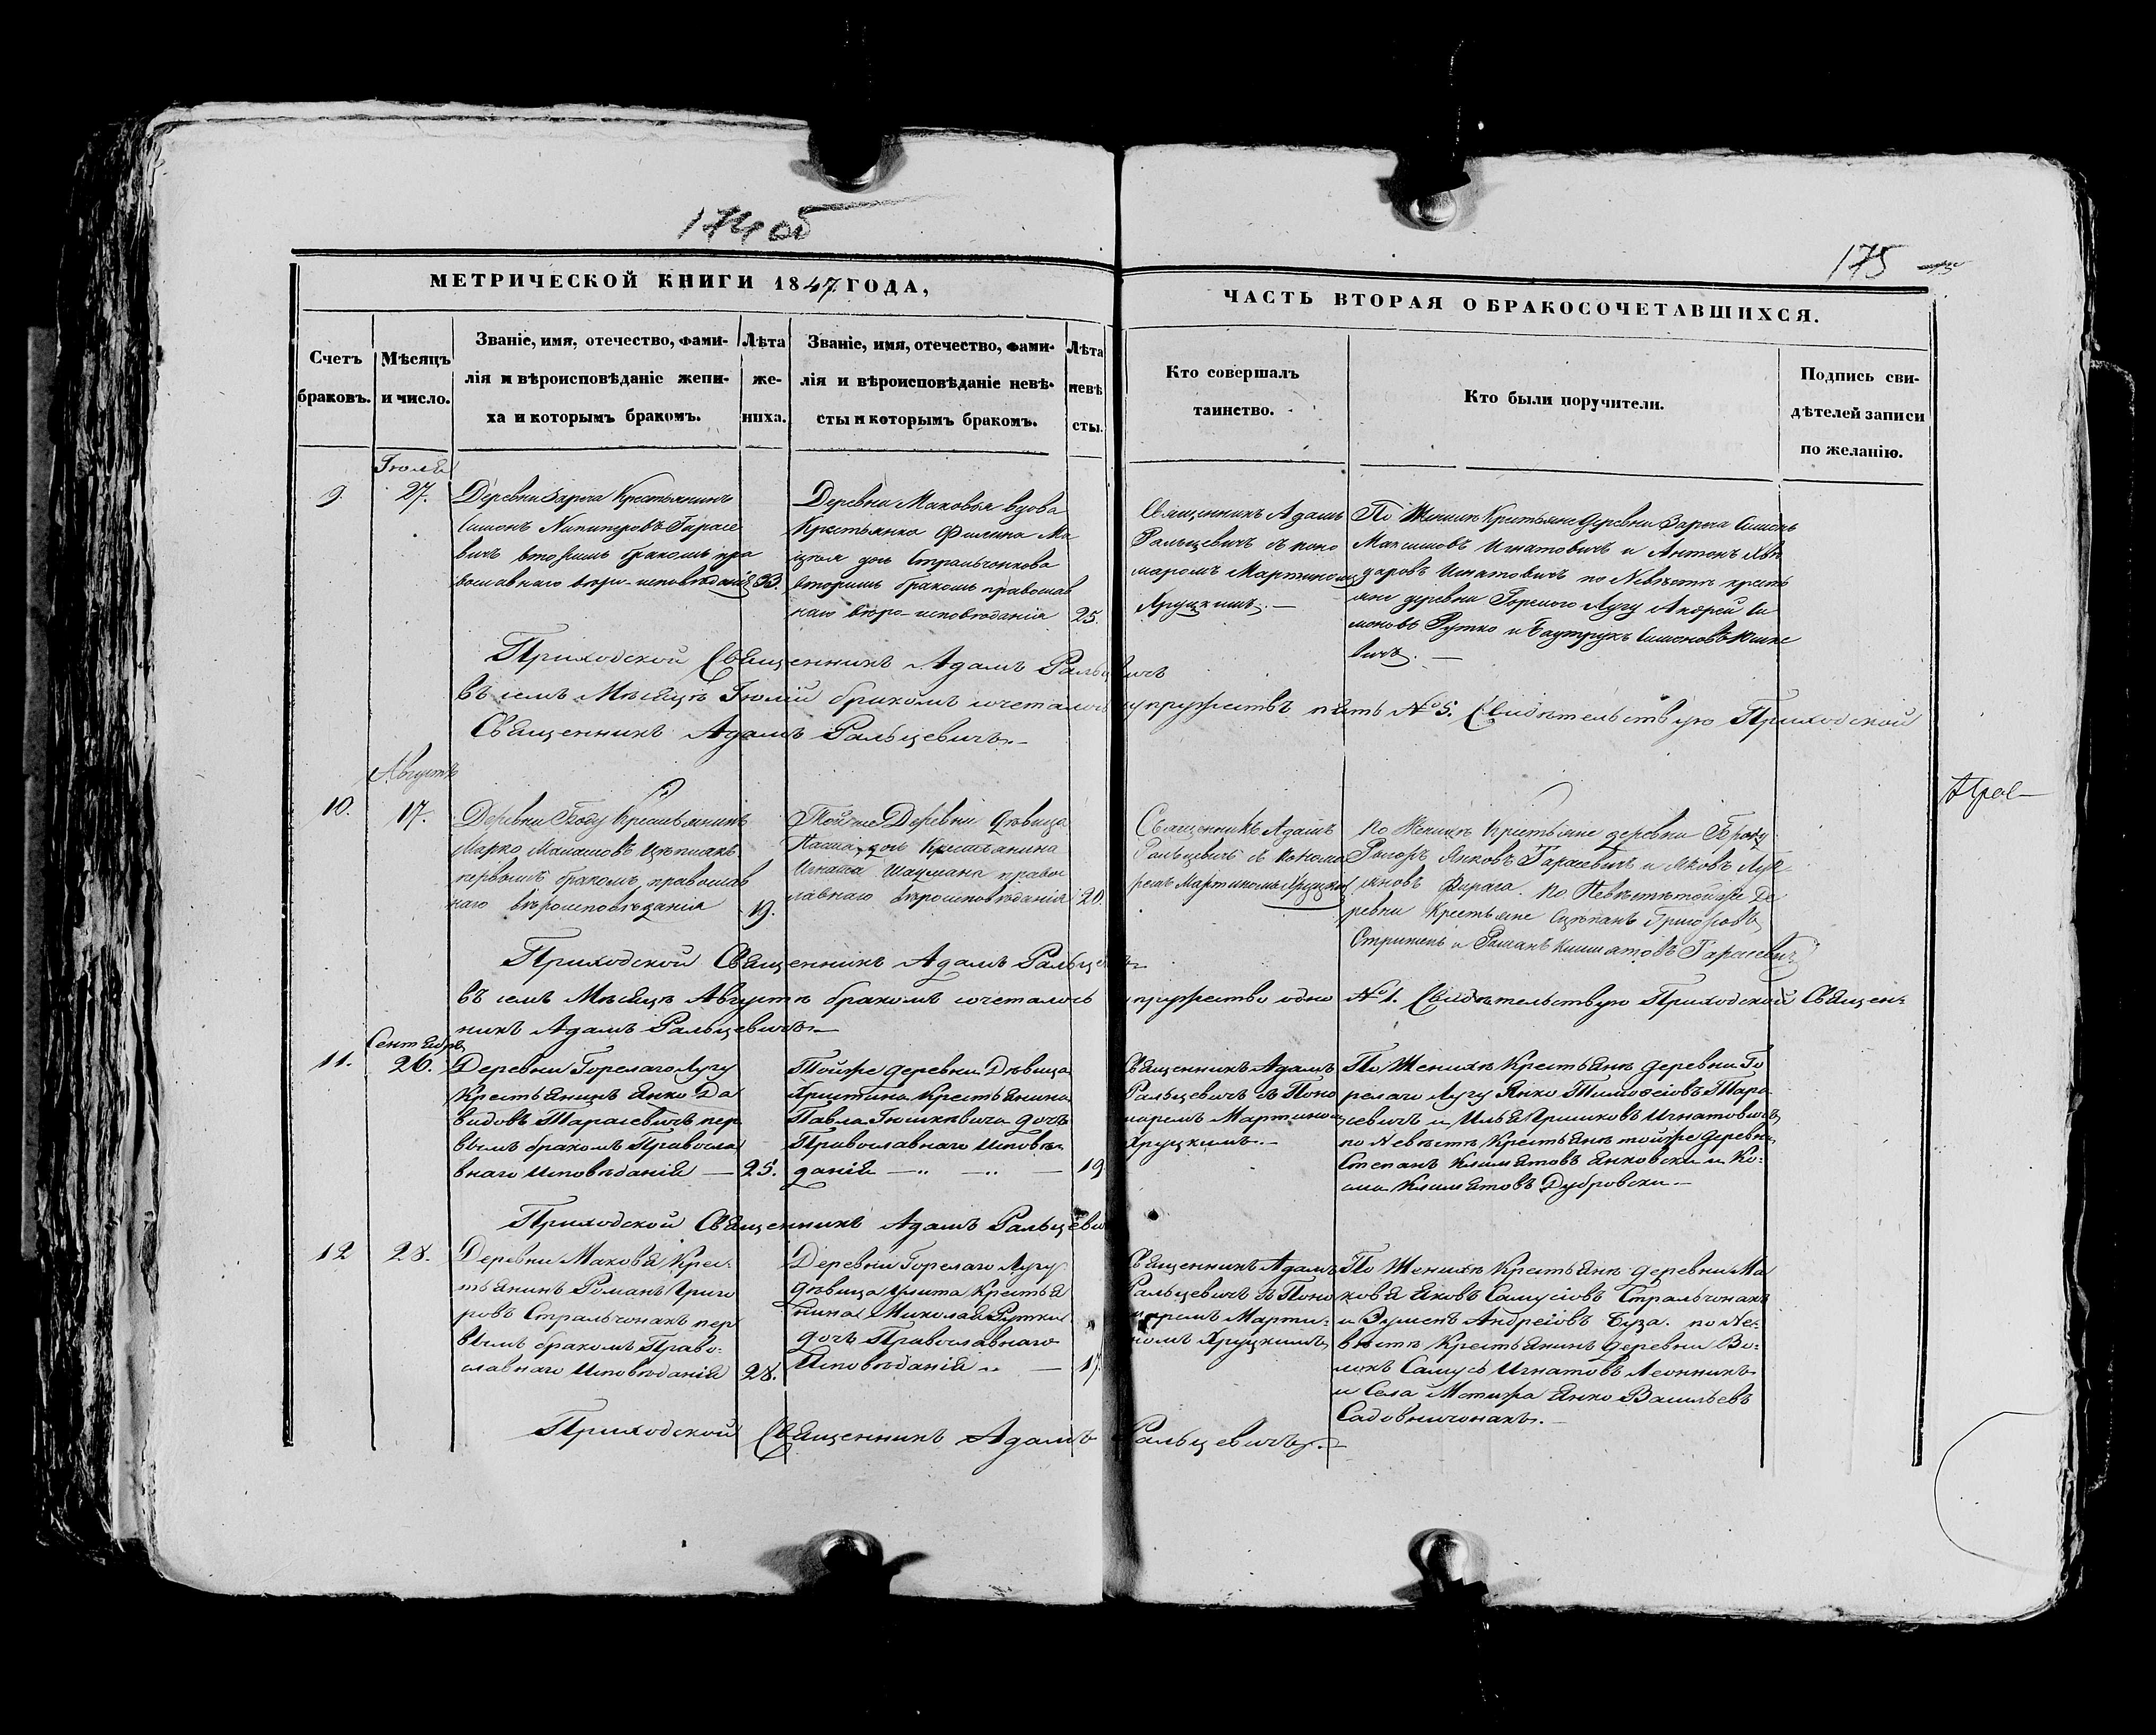 174 об
175
МЕТРИЧЕСКОЙ КНИГИ 1847. ГОДА,
ЧАСТЬ ВТОРАЯ О БРАКОСОЧЕТАВШИХСЯ.
Счетъ
браковъ.
Мѣсяцъ
и число.
Званіе, имя, отечество, фами-
лія и вѣроисповѣданіе жени-
ха и которымъ бракомъ.
Лѣта
же-
ниха.
Званіе, имя, отечество, фами-
лія и вѣроисповѣданіе невѣ-
сты и которымъ бракомъ.
Лѣта
невѣ
сты.
Кто совершалъ
таинство.
Кто были поручители.
Подпись сви-
дѣтелей записи
по желанію.
9.
Іюля
27.
Деревни Зареча Крестьянинъ
Симонъ Гарасе
вичъ вторымъ бракомъ пра
вославнаго вѣро-исповѣданія
33.
Деревни Маковья вдова
Крестьянка
дочь Стральчонкова
вторымъ бракомъ православ
наго вѣро-исповѣданія
25.
Священникъ Адамъ
Ральцевичъ съ поно
маромъ Мартиномъ
Хруцкимъ.—
По Женихѣ Крестьяне деревни Зареча Симонъ
Максимовъ Игнатовичъ и Антонъ
Игнатовичъ по Невѣстѣ кресть
яне деревни Горелого Лугу Андрей Си
моновъ Рутко и Баутрукъ Симоновъ
вичъ.—
Приходской Священникъ Адамъ Ральцевичъ
въ семъ Мѣсяцѣ Іюлѣ бракомъ сочеталось супружествъ пять №5. Свидѣтельствую Приходской
Священникъ Адамъ Ральцевичъ.—
10.
Августъ
17.
Деревни Броду Крестьянинъ
Марко
первымъ бракомъ православ
наго вѣроисповѣданія
19.
Той же Деревни Дѣвица
дочь Крестьянина
Игната правос
лавнаго вѣроисповѣданія
20.
Священникъ Адамъ
Ральцевичъ съ понома
ремъ Мартиномъ Хруцкимъ
По Женихѣ Крестьяне деревни Броду
Янковъ Гарасевичъ и Яковъ Лук
яновъ По Невѣстѣ той же Де
ревни Крестьяне Сцѣпанъ Григоровъ
и Романъ Гарасевичъ
Приходской Священникъ Адамъ Ральцевичъ
въ семъ Мѣсяцѣ Августѣ бракомъ сочеталось супружество одно №1. Свидѣтельствую Приходской Священ-
никъ Адамъ Ральцевичъ.—
11.
Сентябрь
26.
Деревни Горелаго Лугу
Крестьянинъ Янко Да
видовъ Тарасевичъ пер
вымъ бракомъ Правосла
внаго Исповѣданія —
25.
Тойже деревни Дѣвица
Христина Крестьянина
Павла дочь
Православнаго Исповѣ-
данія — „ — „ —
19
Священникъ Адамъ
Ральцевичъ съ Поно
маремъ Мартиномъ
Хруцкимъ.—
По Женихѣ Крестьяне деревни Го
релаго Лугу Янко Тимофеіовъ Тара
севичъ и Илья Гришковъ Игнатовичъ
по Невѣстѣ Крестьяне тойже деревни
Степанъ Климятовъ Янковски и Ко-
сма Климятовъ Дубровски.—
Приходской Священникъ Адамъ Ральцевичъ
12
28.
Деревни Маковя Крес-
тьянинъ Романъ Григо
ровъ Стральчонакъ пер
вымъ бракомъ Право-
славнаго Исповѣданія
28.
Деревни Горелаго Лугу
дѣвица Улита Крестья
нина Миколая Рутки
дочь Православнаго
Исповѣданія „ —
17.
Священникъ Адамъ
Ральцевичъ съ Поно
маремъ Марти-
номъ Хруцкимъ
По Женихѣ Крестьяне деревни Ма
ковя Яковъ Самусіовъ Стральчонакъ
и Андреіовъ Буза. по Не-
вѣстѣ Крестьянинъ деревни Во-
локъ Самусь Игнатовъ Леонникъ
и Села Мотыжа Янко Васильевъ
Садовничонакъ.—
Приходской Священникъ Адамъ Ральцевичъ.—